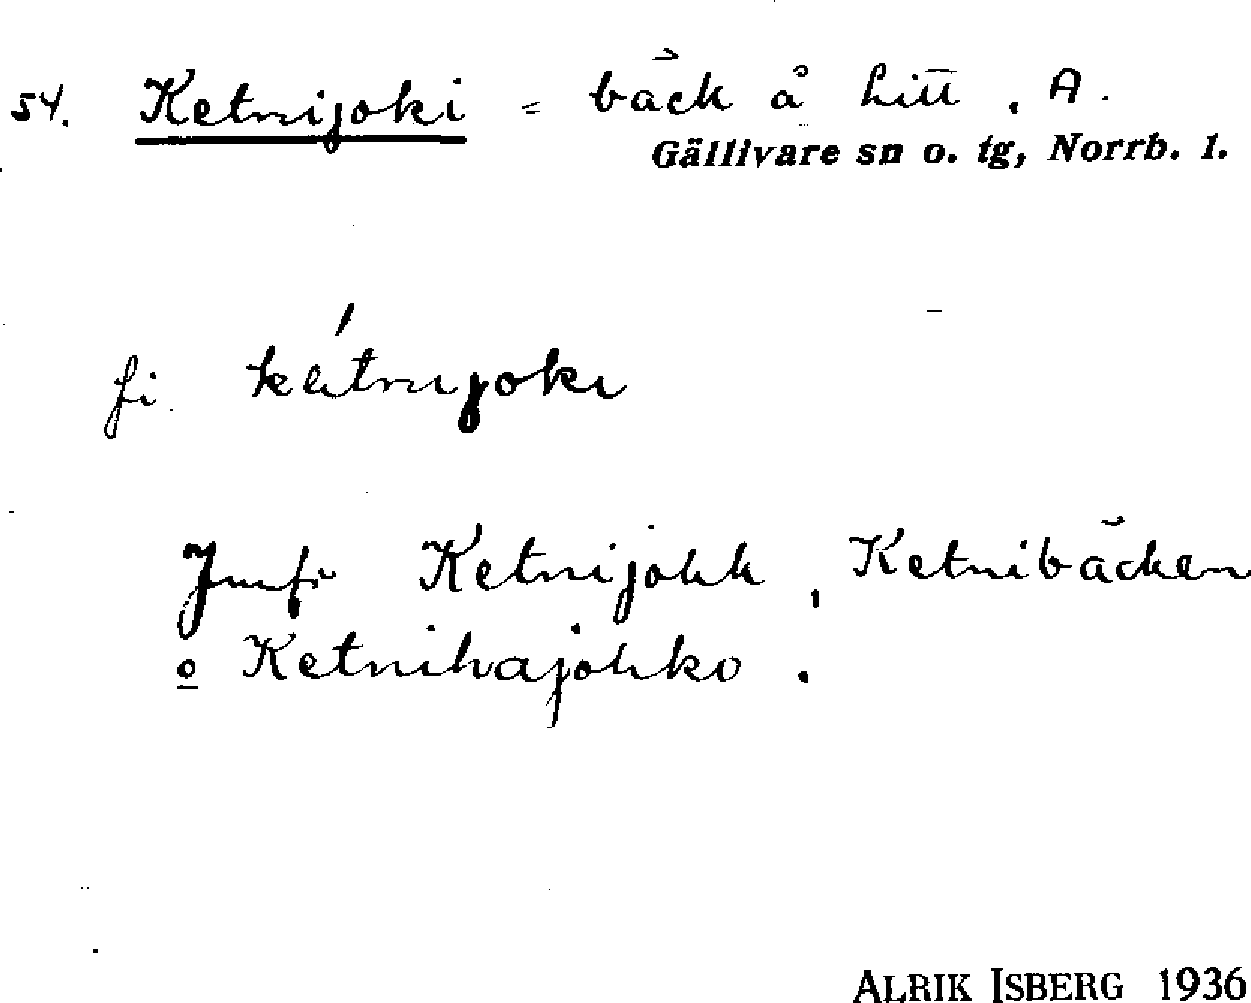 54. Ketnijoki = bäck å litt. A.
Gällivare sn o. tg, Norrb. l.
fi. kétnijoki
Jmfr Ketnijokk, Ketnibäcken
o Ketnihajokko.